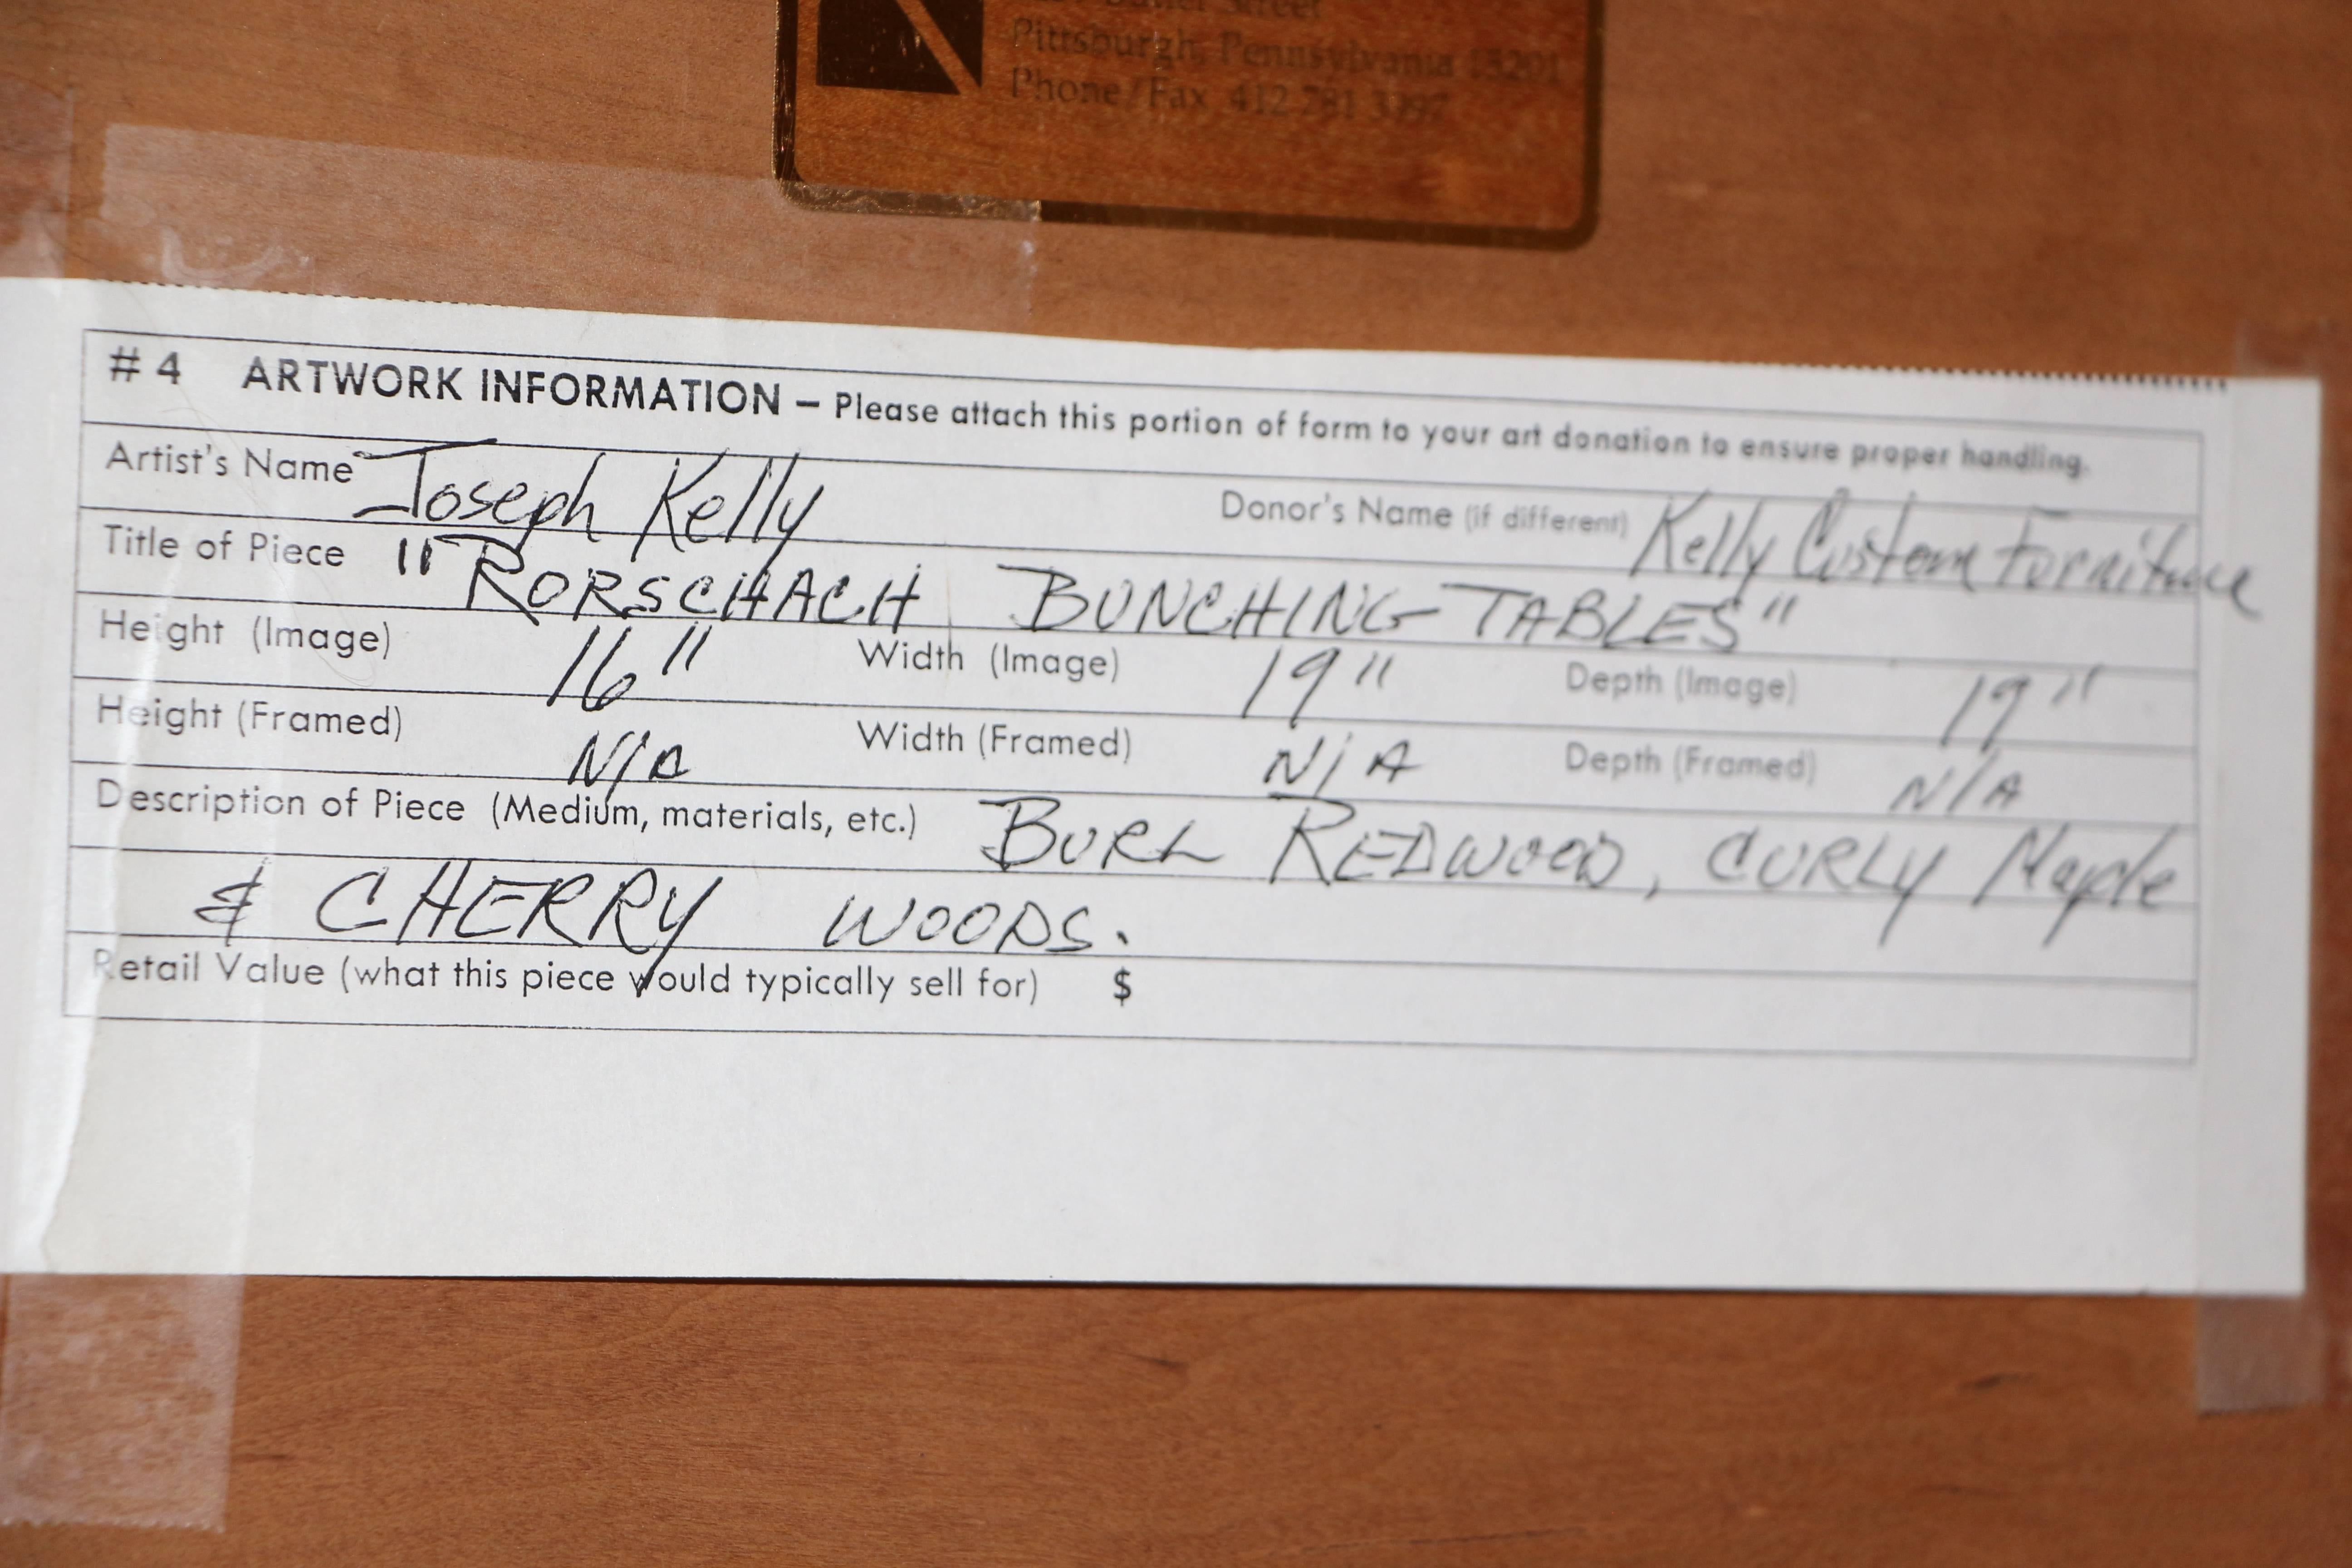 Street
Pittsburgh, Pennsylvania 15201
Phone/Fax 412-781-3997
# 4 ARTWORK INFORMATION – Please attach this portion of form to your art donation to ensure proper handling.
Artist's Name Joseph Kelly Donor's Name (if different) Kelly Custom Furniture
Title of Piece "RORSCHACH BUNCHING TABLES"
Height (Image) 16" Width (Image) 19" Depth (Image) 19"
Height (Framed) N/A Width (Framed) N/A Depth (Framed) N/A
Description of Piece (Medium, materials, etc.) BURL REDWOOD, CURLY Maple
& CHERRY WOODS.
Retail Value (what this piece would typically sell for) $